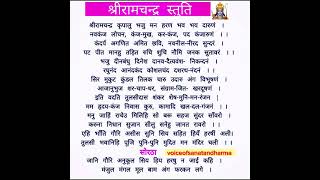 श्रीरामचन्द्र स्तुति
श्रीरामचन्द्र कृपालु भजु मन हरण भव भय दारुणं ।
नवकंज लोचन, कंज-मुख, कर-कंज, पद कंजारुणं ।।
कंदर्प अगणित अमित छवि, नवनील-नीरद सुन्दरं ।
पट पीत मानहु तड़ित रुचि शुचि नौमि जनक सुतावरं ।।
भजु दीनबंधु दिनेश दानव-दैत्यवंश- निकन्दनं ।
रघुनंद आनंदकंद कोशलचंद दशरथ-नंदनं ।।
सिर मुकुट कुंडल तिलक चारु उदारु अंग विभूषणं ।
आजानुभुज शर-चाप-धर, संग्राम-जित- खरदूषणं ।।
इति वदति तुलसीदास शंकर शेष-मुनि-मन-रंजनं ।
मम हृदय-कंज निवास कुरु, कामादि खल-दल-गंजनं ।।
मनु जाहिं राचेउ मिलिहि सो बरू सहज सुंदर साँवरो ।
करुना निधान सुजान सीलु सनेहु जानत रावरो ।।
एहि भाँति गौरि असीस सुनि सिय सहित हियँ हरषीं अली।
तुलसी भवानिहि पूजि पुनि-पुनि मुदित मन मंदिर चली ।।
सोरठा voiceofsanatandharma
जानि गौरि अनुकूल सिय हिय हरषु न जाई कहि ।
मंजुल मंगल मूल बाम अंग फरकन लगे ।